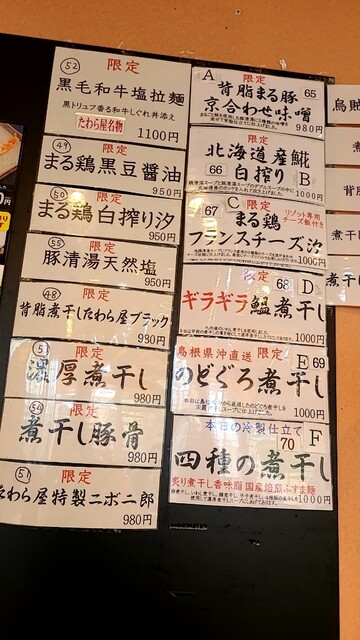 52
限定
黒毛和牛塩拉麺
黒トリュフ香る和牛しぐれ丼添え
たわら屋名物
1100円
49
限定
まる鶏黒豆醤油
950円
50
限定
まる鶏白搾り汐
950円
55
限定
豚清湯天然塩
950円
48
限定
背脂煮干したわら屋ブラック
980円
53
限定
濃厚煮干し
980円
54
限定
煮干し豚骨
980円
51
限定
たわら屋特製ニボ二郎
980円
A
限定
65
背脂まる豚
京合わせ味噌
980円
限定
北海道産𩸽
66
白搾り
B
1000円
67
C
限定
まる鶏
リゾット専用
チーズ飯付き
フランスチーズ汐
1000円
限定
68
D
ギラギラ鰮煮干し
1000円
島根県沖直送
限定
E
69
のどぐろ煮干し
1000円
本日の冷製仕立て
70
F
四種の煮干し
炙り煮干し香味脂 国産焙煎ふすま麺
1000円
烏賊
煮
背脂
煮干
煮干し